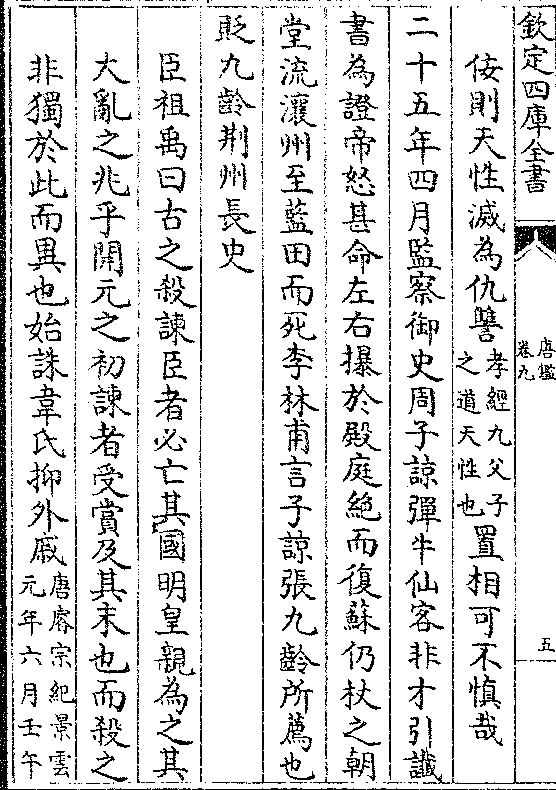 欽定四庫全書
唐鑑
卷九
五
佞則天性滅為仇讐孝經九父子之道天性也置相可不慎哉
二十五年四月監察御史周子諒彈牛仙客非才引讖
書為證帝怒甚命左右㩧於殿庭絶而復蘇仍杖之朝
堂流瀼州至藍田而死李林甫言子諒張九齡所薦也
貶九齡荆州長史
臣祖禹曰古之殺諫臣者必亡其國明皇親為之其
大亂之兆乎開元之初諫者受賞及其末也而殺之
非獨於此而異也始誅韋氏抑外戚唐睿宗紀景雲元年六月壬午